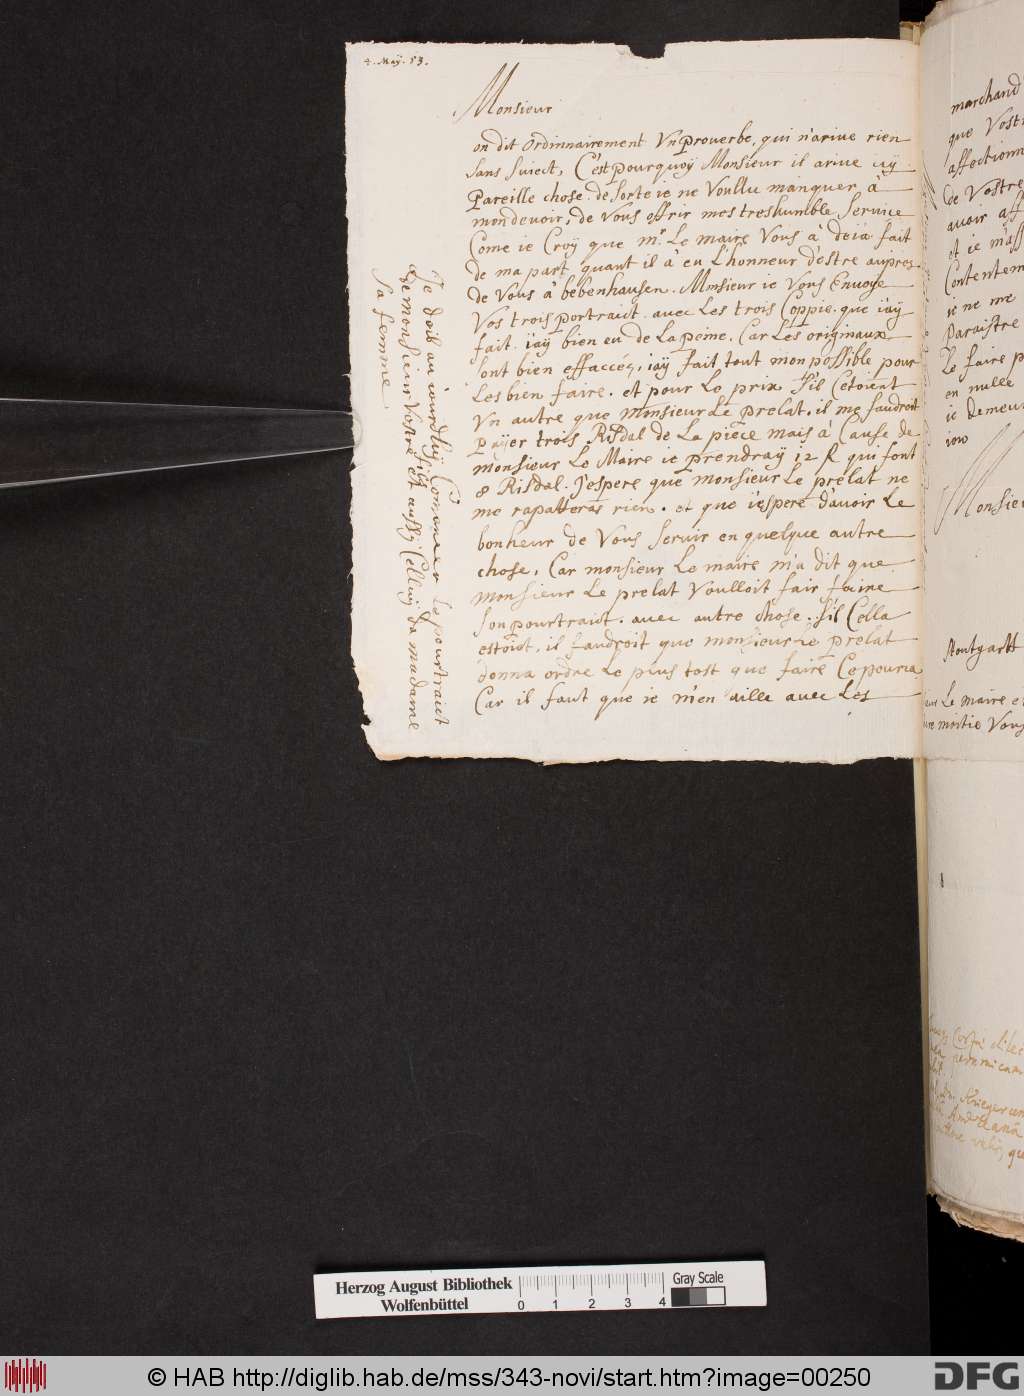 4. May. 53.
Monsieur
on dit Ordinnairement Vn prouerbe, qui n'ariue rien
sans suiect, C'est pourquoy Monsieur il ariue icy
Pareille chose. de sorte ie ne Voullu manquer à
mon deuoir, de Vous offrir mes treshumble seruice
Come ie Croy que mr. Le maire Vous à deia fait
de ma part quant il à eu L'honneur d'estre aupres
de Vous à bebenhausen. Monsieur ie Vous Enuoye
Vos trois portraict. auec Les trois Coppie. que i'ay
fait. i'ay bien eu de La peine. Car Les originaux
sont bien effaccéz, i'ay fait tout mon possible pour
Les bien faire. et pour Le prix s'il Cetoient
Vn autre que Monsieur Le prelat, il me faudroit
payer trois Risdal de La piece mais à Cause de
monsieur Le Maire ie prendray 12 R qui font
8 Risdal. J'espere que monsieur Le prelat ne
me rapatteras rien. et que i'espere d'auoir Le
bonheur de Vous seruir en quelque autre
chose, Car monsieur Le maire m'a dit que
monsieur Le prelat Voulloit fair faire
son pourtraict. auec autre chose. s'il Cella
estoict, il faudroit que monsieur Le prelat
donna ordre Le plus tost que faire Ce poura
Car il faut que ie m'en aille auec Les
Je dois au iourdhuy Comencer Le pourtraict
de monsieur Vostre fils et aussy Celluy da madame
sa femme
marchand
que Vost
affectionn
de Vostre
auoir aff
et ie m'ass
Contentem
ie ne me
Paraistre
Le faire p
en nulle
ie demeu
iour
Monsieu
Stoutgartt
Le maire e
moitie Vous
Herzog August Bibliothek
Wolfenbüttel
0 1 2 3 4
Gray Scale
© HAB http://diglib.hab.de/mss/343-novi/start.htm?image=00250
DFG